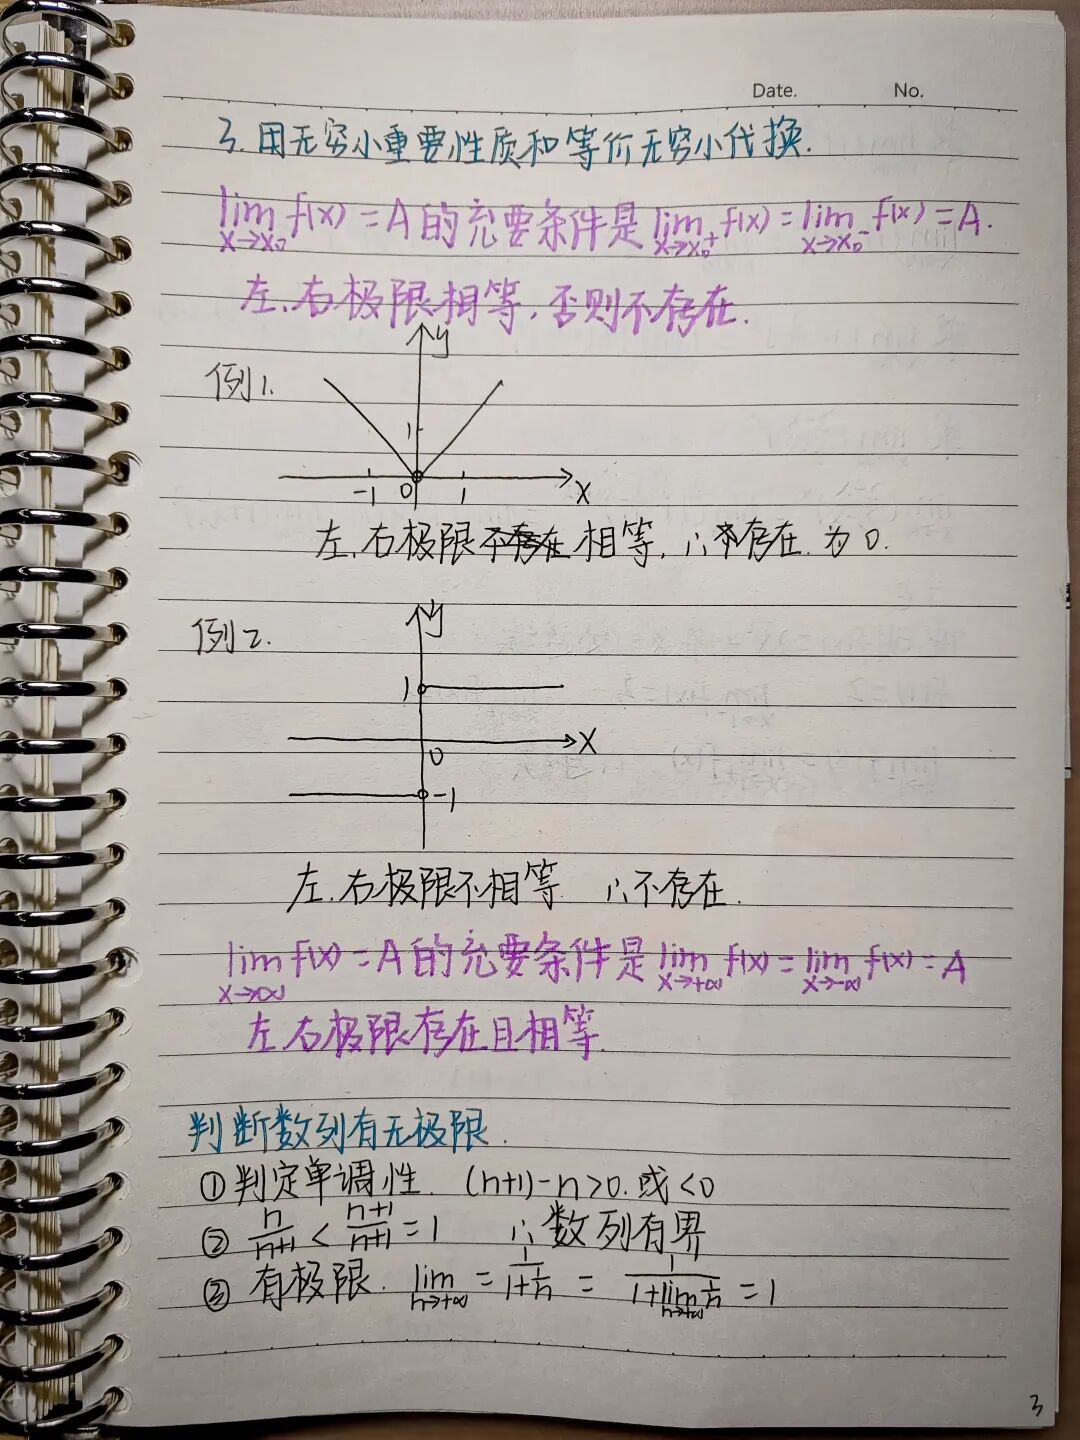 Date. No.
3. 用无穷小重要性质和等价无穷小代换.
lim f(x) = A 的充要条件是 lim f(x) = lim f(x) = A.
x→x₀ x→x₀⁺ x→x₀⁻
左、右极限相等, 否则不存在.
例1.
y
1
-1 0 1 x
左、右极限不存在相等, ∴不存在. 为0.
例2.
y
1
x
0
-1
左、右极限不相等. ∴不存在.
lim f(x) = A 的充要条件是 lim f(x) = lim f(x) = A
x→∞ x→+∞ x→-∞
左右极限存在且相等.
判断数列有无极限.
①判定单调性. (n+1)-n>0.或<0
② n/(n+1) < (n+1)/(n+1) = 1 ∴数列有界
③ 有极限. lim n→+∞ = 1/(1+1/n) = 1/(1+lim n→+∞ 1/n) = 1
3